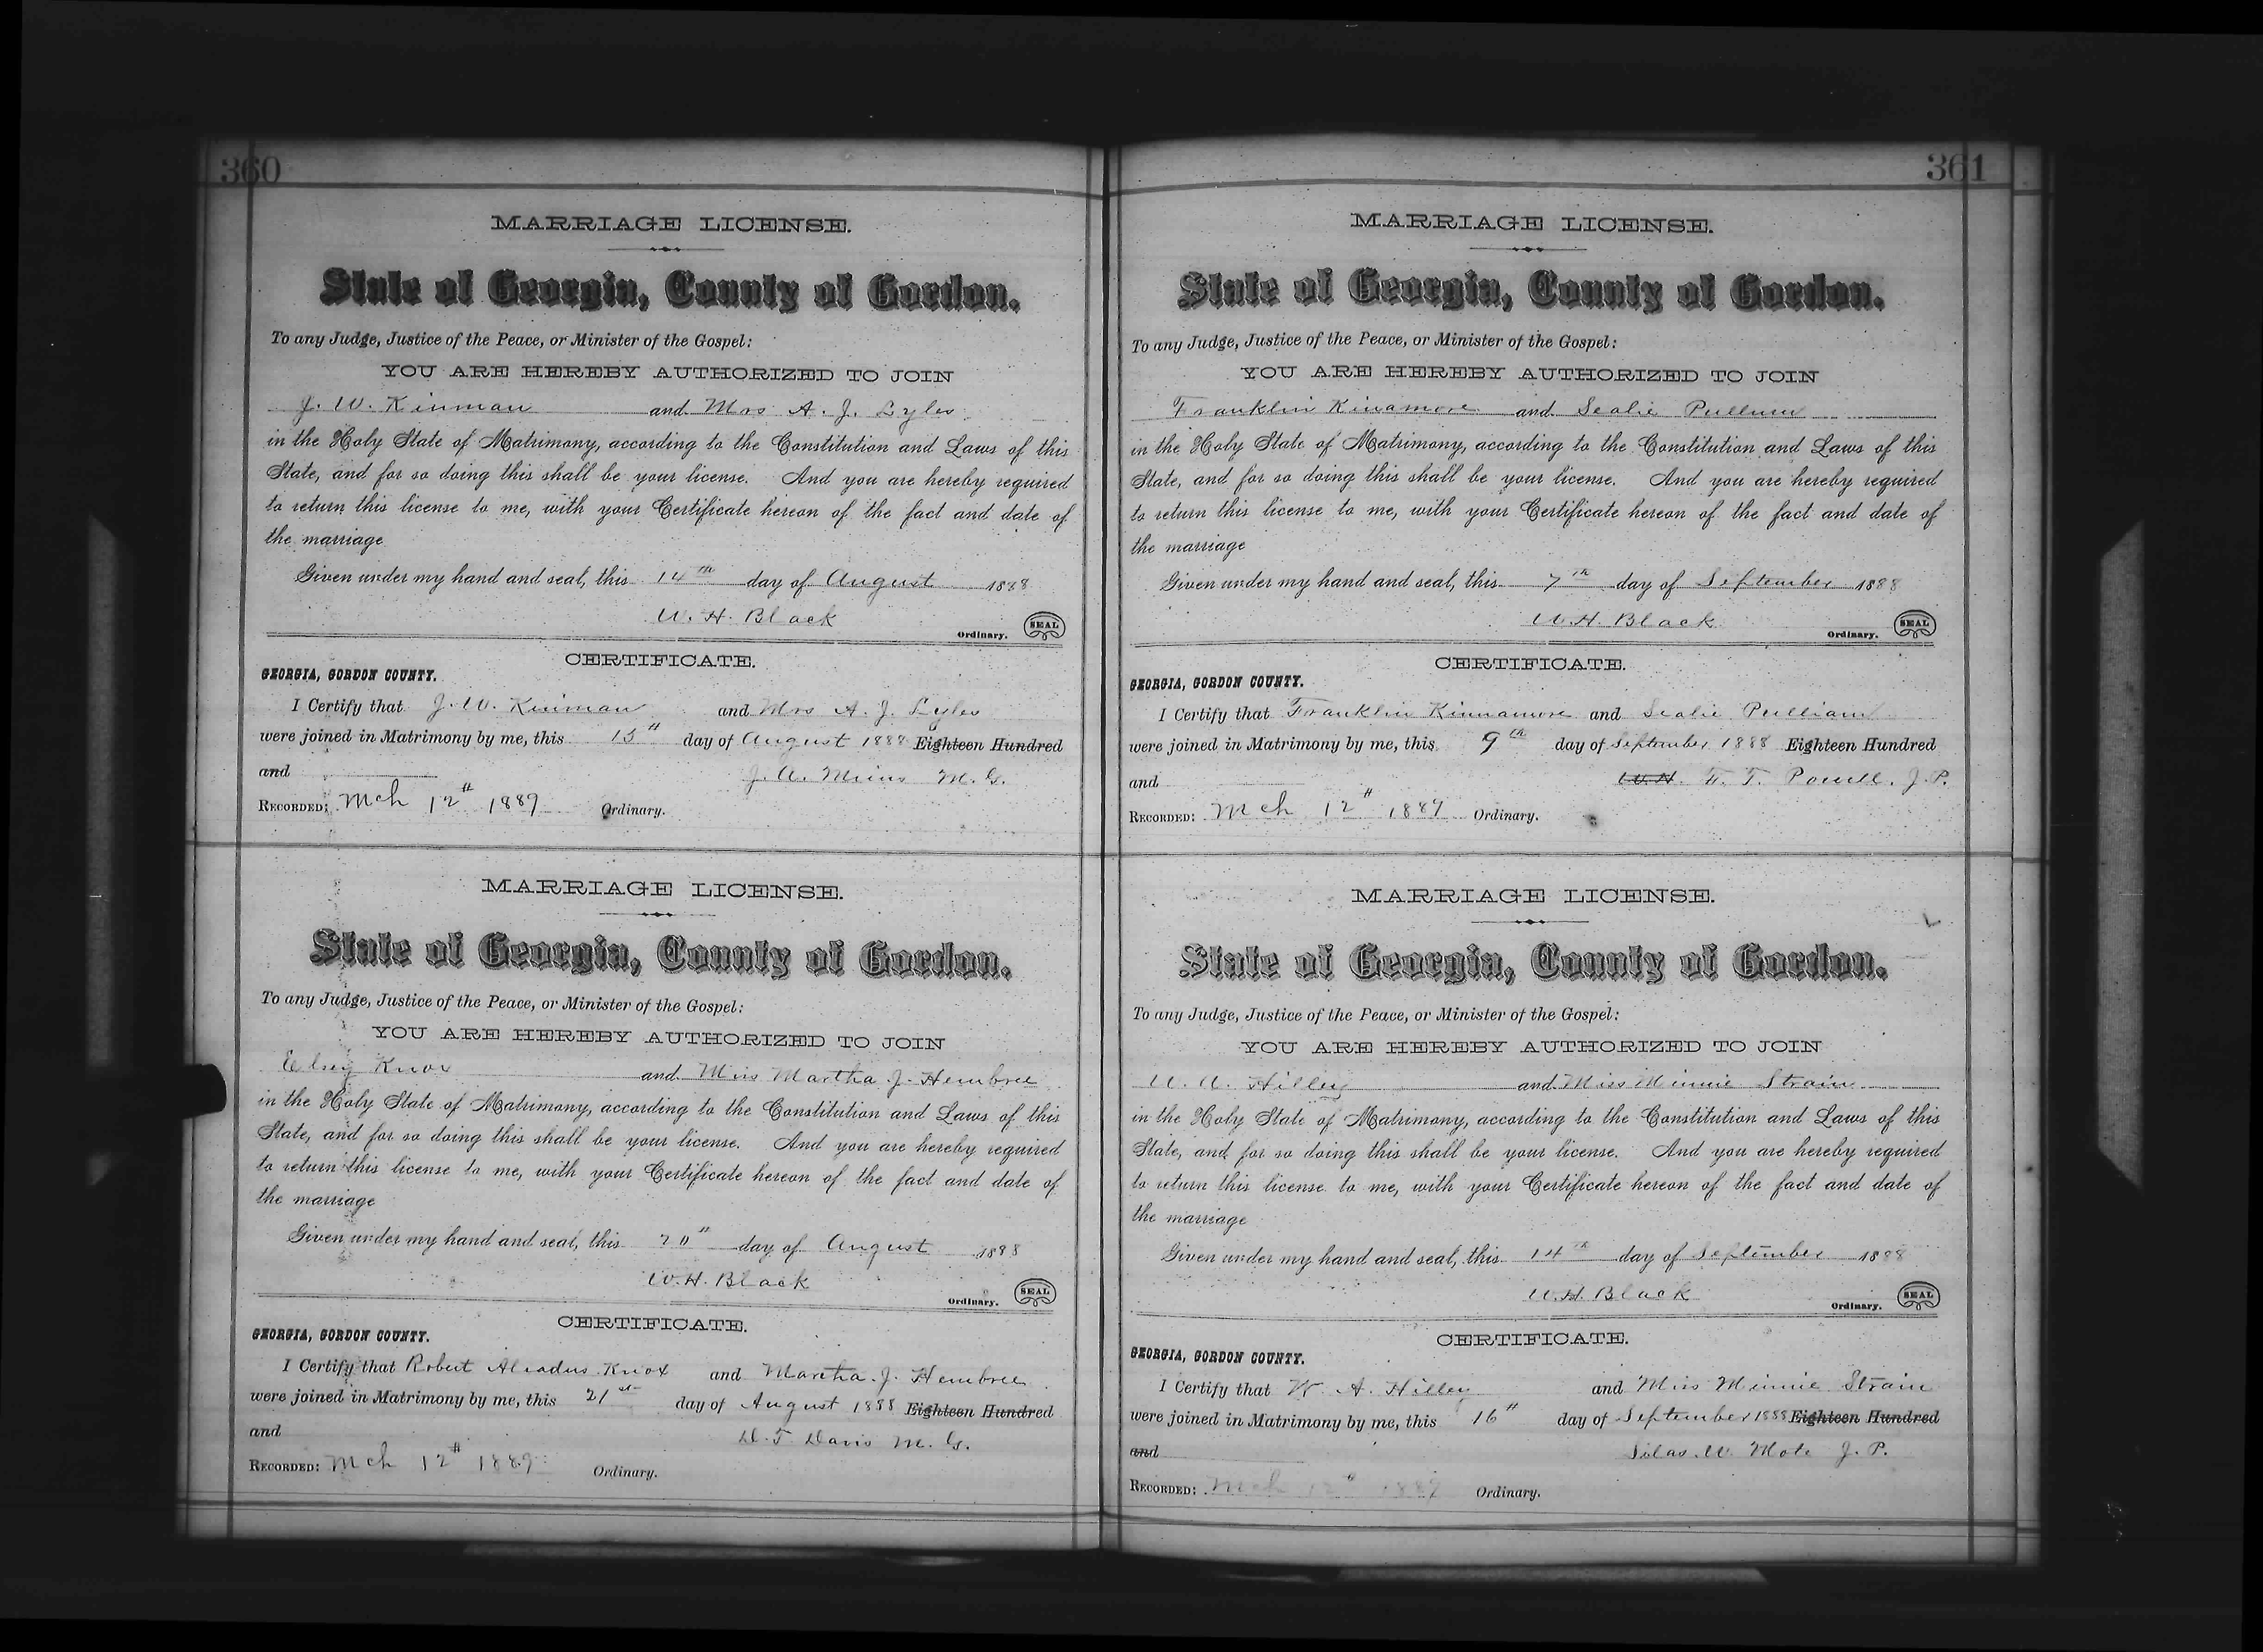 360
MARRIAGE LICENSE.
State of Georgia, County of Gordon.
To any Judge, Justice of the Peace, or Minister of the Gospel:
YOU ARE HEREBY AUTHORIZED TO JOIN
J. W. Kinman and Mrs A. J. Lyles
in the Holy State of Matrimony, according to the Constitution and Laws of this
State, and for so doing this shall be your license. And you are hereby required
to return this license to me, with your Certificate hereon of the fact and date of
the marriage
Given under my hand and seal, this 14th day of August 1888
W. H. Black
Ordinary. SEAL
CERTIFICATE.
GEORGIA, GORDON COUNTY.
I Certify that J. W. Kinman and Mrs A. J. Lyles
were joined in Matrimony by me, this 15th day of August 1888 Eighteen Hundred
and J. A. Mims M. G.
RECORDED: Mch 12th 1889 Ordinary.
MARRIAGE LICENSE.
State of Georgia, County of Gordon.
To any Judge, Justice of the Peace, or Minister of the Gospel:
YOU ARE HEREBY AUTHORIZED TO JOIN
Knox and Miss Martha J. Hembree
in the Holy State of Matrimony, according to the Constitution and Laws of this
State, and for so doing this shall be your license. And you are hereby required
to return this license to me, with your Certificate hereon of the fact and date of
the marriage
Given under my hand and seal, this 20th day of August 1888
W. H. Black
Ordinary. SEAL
CERTIFICATE.
GEORGIA, GORDON COUNTY.
I Certify that Robert Knox and Martha J. Hembree
were joined in Matrimony by me, this 21st day of August 1888 Eighteen Hundred
and D. T. Davis M. G.
RECORDED: Mch 12th 1889 Ordinary.
361
MARRIAGE LICENSE.
State of Georgia, County of Gordon.
To any Judge, Justice of the Peace, or Minister of the Gospel:
YOU ARE HEREBY AUTHORIZED TO JOIN
Franklin Kinamore and Sealie Pullum
in the Holy State of Matrimony, according to the Constitution and Laws of this
State, and for so doing this shall be your license. And you are hereby required
to return this license to me, with your Certificate hereon of the fact and date of
the marriage
Given under my hand and seal, this 7th day of September 1888
W. H. Black
Ordinary. SEAL
CERTIFICATE.
GEORGIA, GORDON COUNTY.
I Certify that Franklin Kinnamore and Sealie Pulliam
were joined in Matrimony by me, this 9th day of September 1888 Eighteen Hundred
and W. H. F. T. Powell, J. P.
RECORDED: Mch 12th 1889 Ordinary.
MARRIAGE LICENSE.
State of Georgia, County of Gordon.
To any Judge, Justice of the Peace, or Minister of the Gospel:
YOU ARE HEREBY AUTHORIZED TO JOIN
W. A. Hilley and Miss Minnie Strain
in the Holy State of Matrimony, according to the Constitution and Laws of this
State, and for so doing this shall be your license. And you are hereby required
to return this license to me, with your Certificate hereon of the fact and date of
the marriage
Given under my hand and seal, this 14th day of September 1888
W. H. Black
Ordinary. SEAL
CERTIFICATE.
GEORGIA, GORDON COUNTY.
I Certify that W. A. Hilley and Miss Minnie Strain
were joined in Matrimony by me, this 16th day of September 1888 Eighteen Hundred
and Silas W. Mote J. P.
RECORDED: Mch 12th 1889 Ordinary.